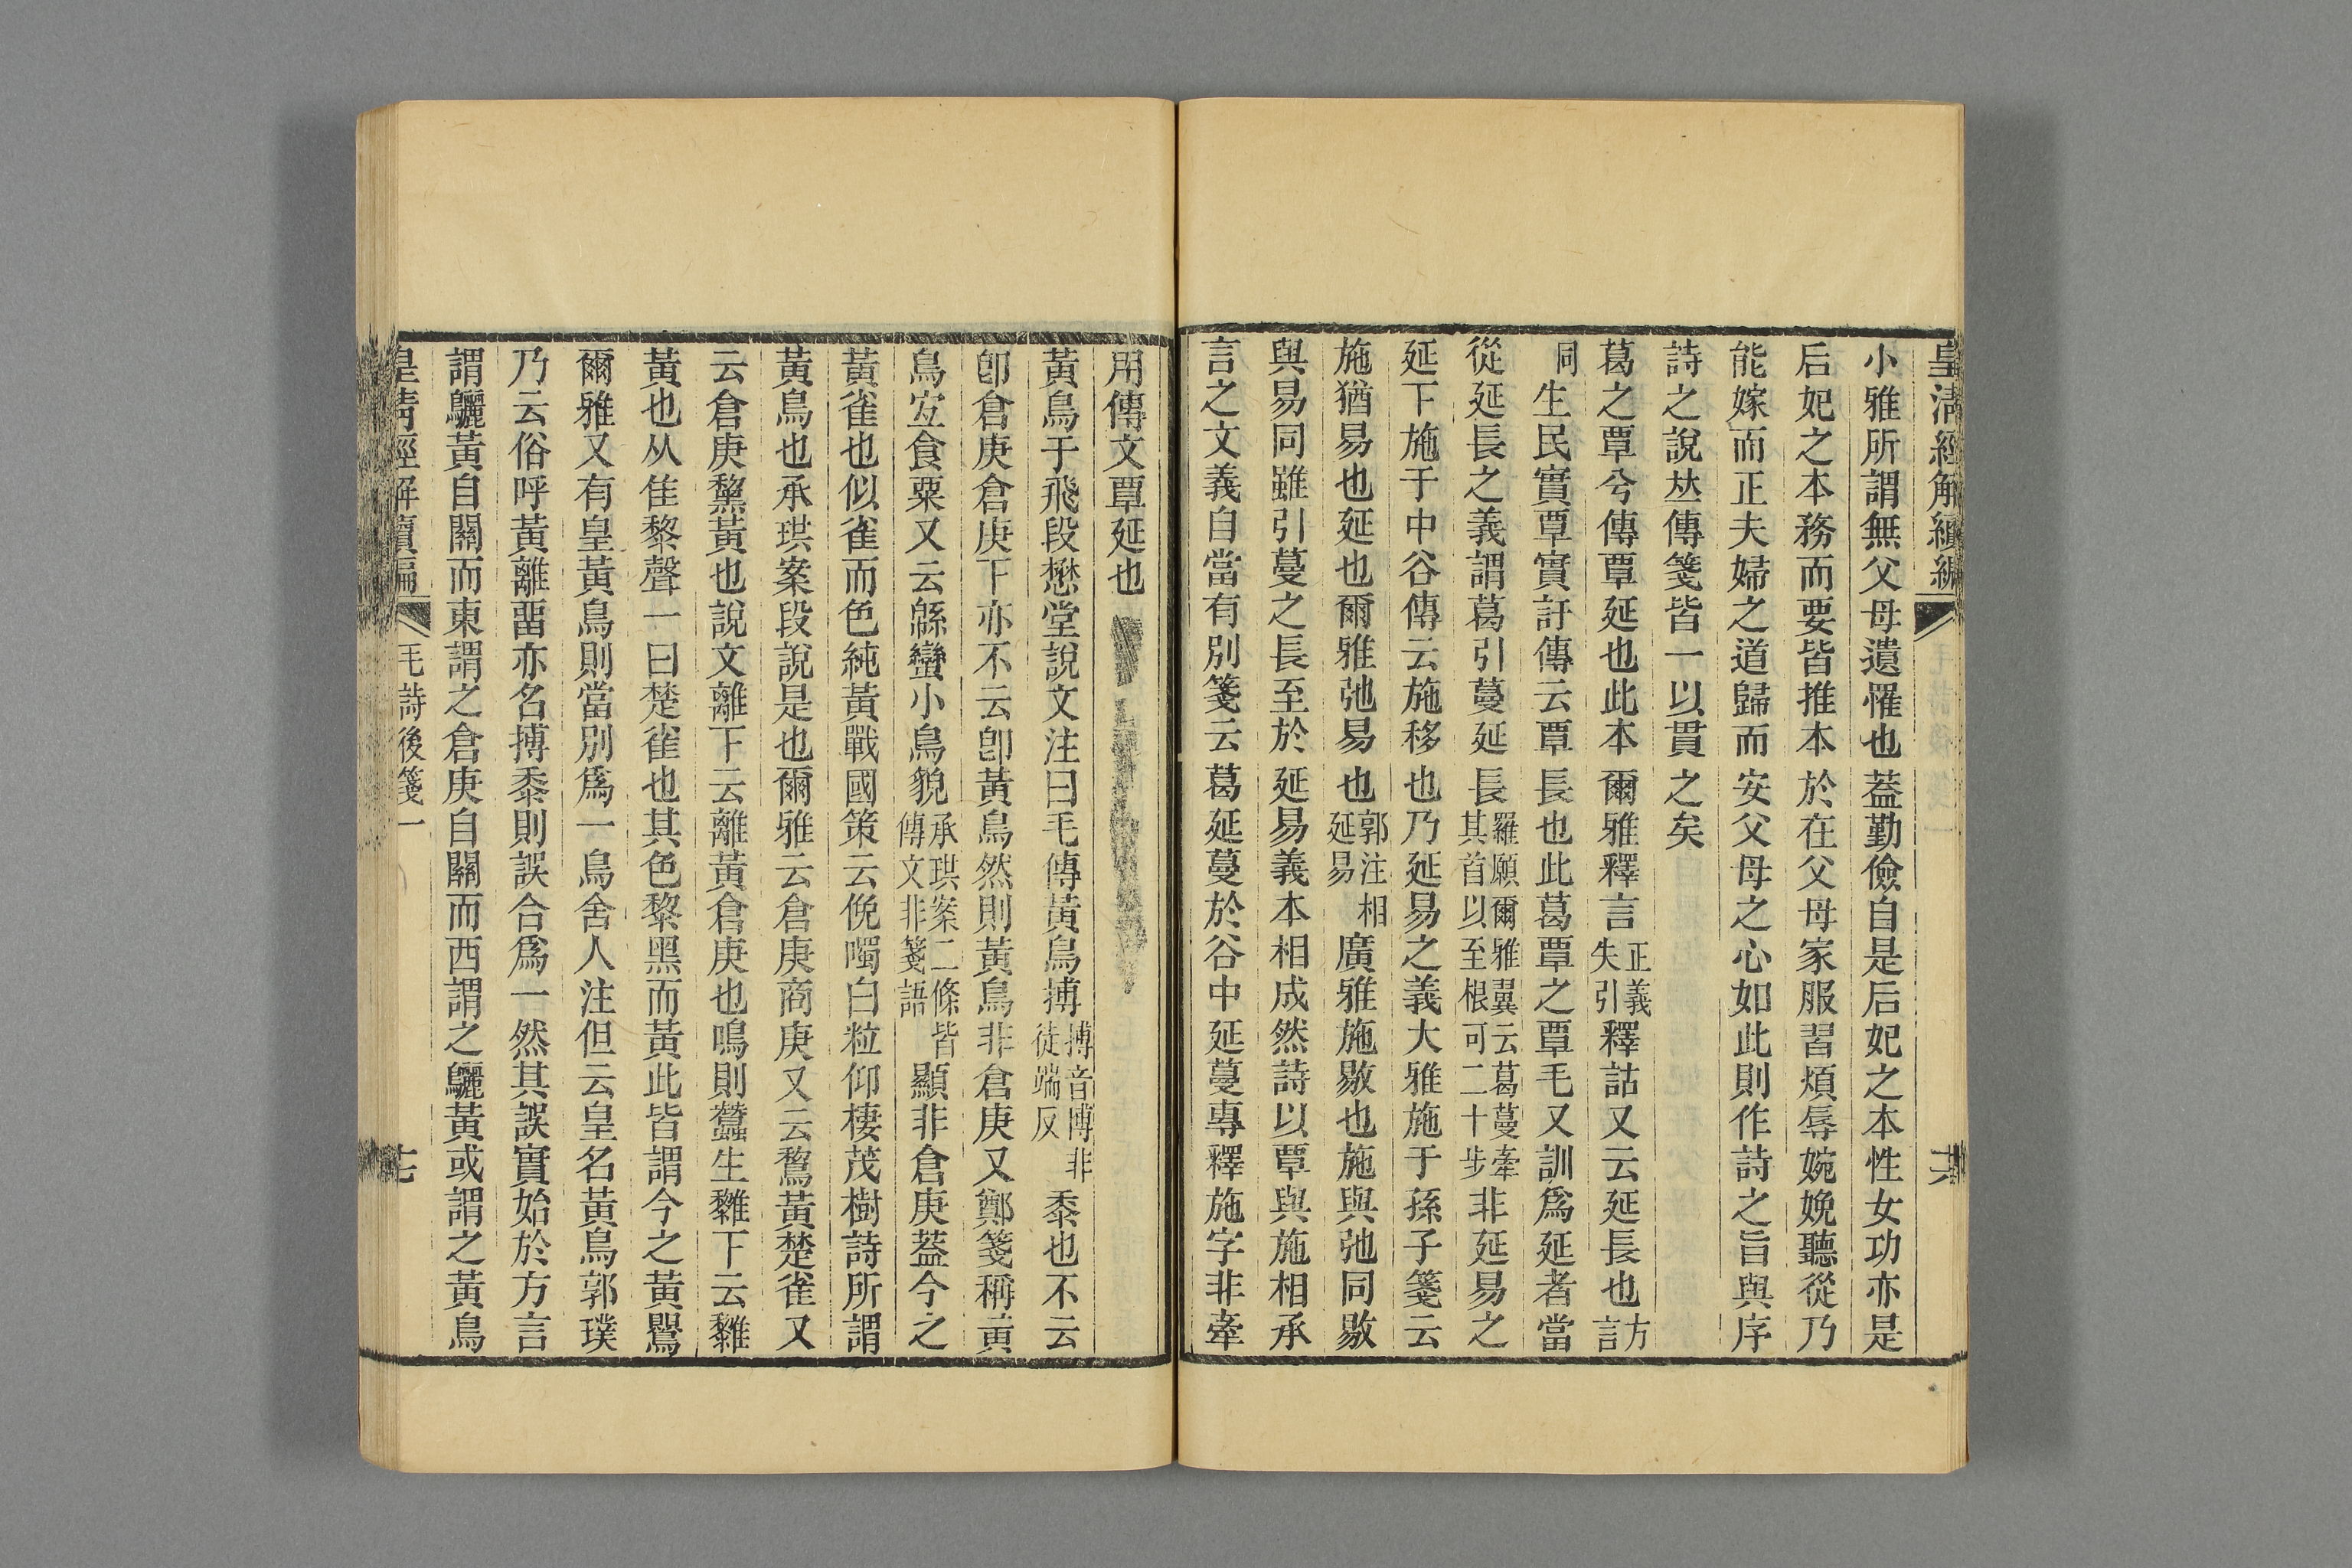 皇清經解續編
小雅所謂無父母遺罹也蓋勤儉自是后妃之本性女功亦是
后妃之本務而要皆推本於在父母家服習煩辱婉娩聽從乃
能嫁而正夫婦之道歸而安父母之心如此則作詩之旨與序
詩之說𠀤傳箋皆一以貫之矣
葛之覃兮傳覃延也此本爾雅釋言正義失引釋詁又云延長也方言
同生民實覃實訏傳云覃長也此葛覃之覃毛又訓爲延者當
從延長之義謂葛引蔓延長羅願爾雅翼云葛蔓牽其首以至根可二十步非延易之
延下施于中谷傳云施移也乃延易之義大雅施于孫子箋云
施猶易也延也爾雅弛易也郭注相延易廣雅施敡也施與弛同敡
與易同雖引蔓之長至於延易義本相成然詩以覃與施相承
言之文義自當有別箋云葛延蔓於谷中延蔓專釋施字非牽
用傳文覃延也
黃鳥于飛段懋堂說文注曰毛傳黃鳥搏搏音博非徒端反黍也不云
卽倉庚倉庚下亦不云卽黃鳥然則黃鳥非倉庚又鄭箋稱黃
鳥宐食粟又云緜蠻小鳥貌承珙案二條皆傳文非箋語顯非倉庚蓋今之
黃雀也似雀而色純黃戰國策云俛噣白粒仰棲茂樹詩所謂
黃鳥也承珙案段說是也爾雅云倉庚商庚又云鵹黃楚雀又
云倉庚黧黃也說文離下云離黃倉庚也鳴則蠶生雞下云雞
黃也从隹黎聲一曰楚雀也其色黎黑而黃此皆謂今之黃鸎
爾雅又有皇黃鳥則當別爲一鳥舍人注但云皇名黃鳥郭璞
乃云俗呼黃離畱亦名搏黍則誤合爲一然其誤實始於方言
謂鸝黃自關而東謂之倉庚自關而西謂之鸝黃或謂之黃鳥
皇清經解續編 毛詩後箋一 十七